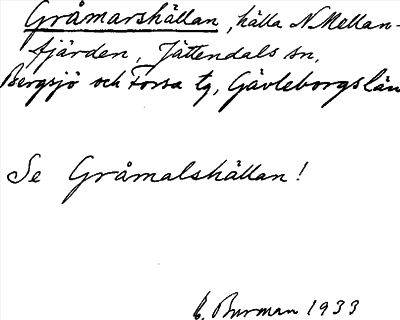 Gråmarshällan, hälla N Mellan-
fjärden, Jättendals sn,
Bergsjö och Forsa tg, Gävleborgs län
Se Gråmalshällan!
C. Burman 1933